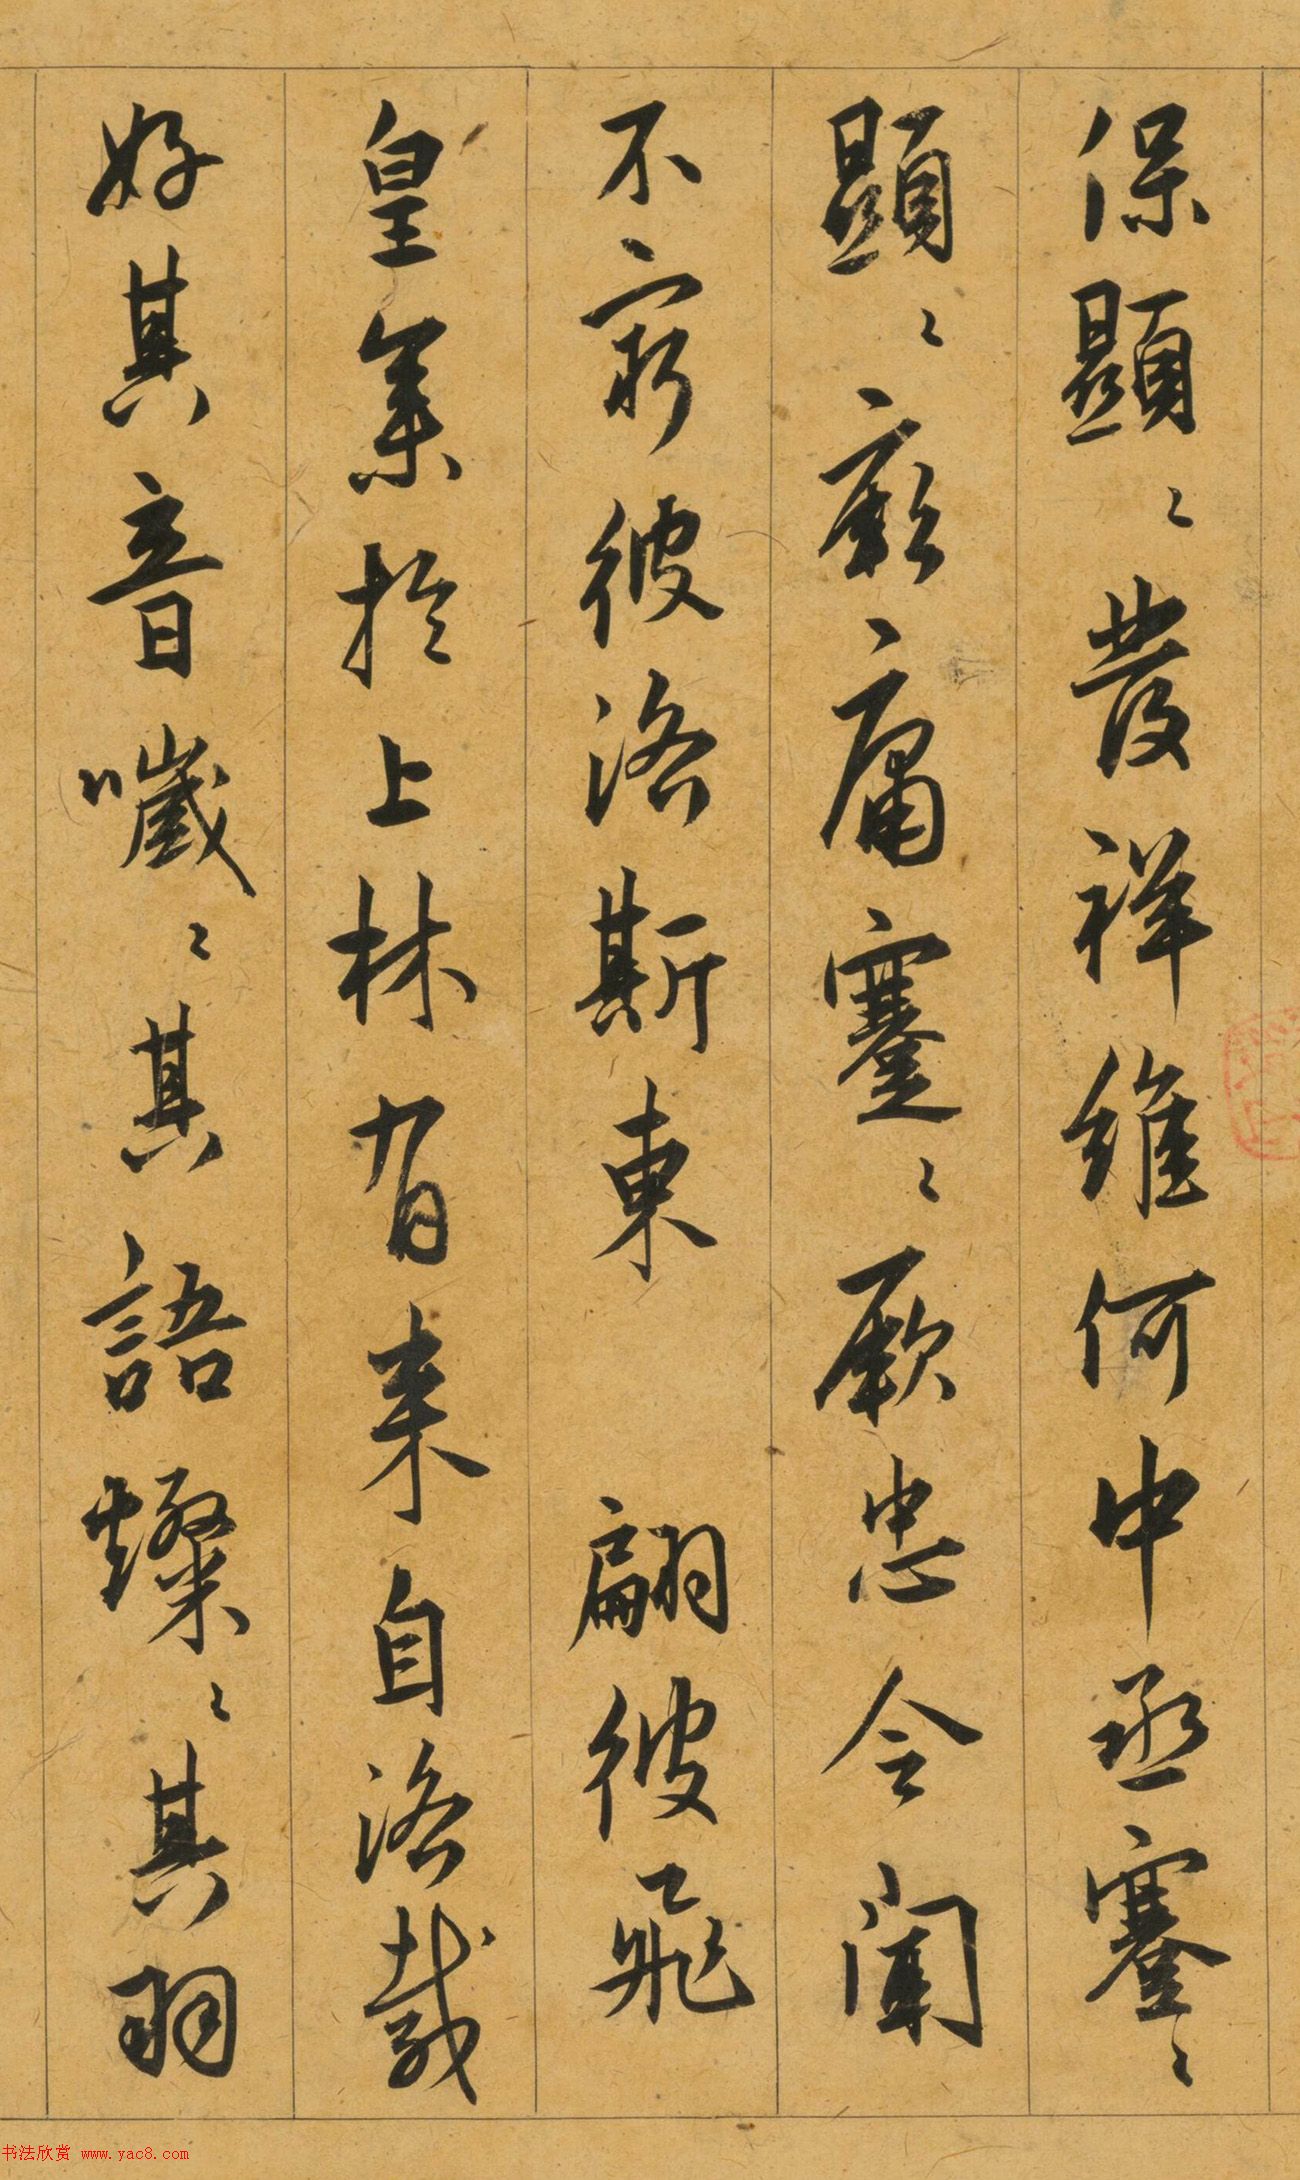 保顯〻發祥維何中丞蹇〻
顯〻厥庸蹇〻厥忠令聞
不窮彼洛斯東 翩彼飛
皇集於上林有来自洛載
好其音噦〻其語粲〻其羽
书法欣赏 www.yac8.com